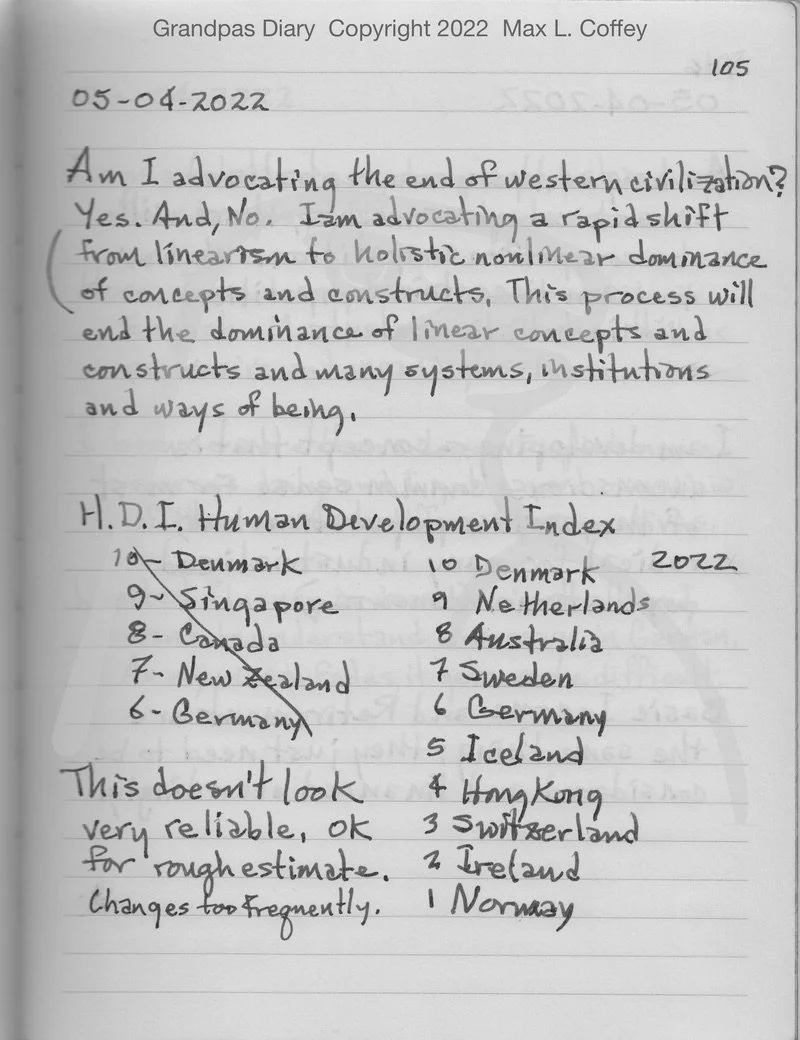 Grandpas Diary Copyright 2022 Max L. Coffey
105
05-04-2022
Am I advocating the end of western civilization?
Yes. And, No. I am advocating a rapid shift
from linearism to holistic nonlinear dominance
of concepts and constructs. This process will
end the dominance of linear concepts and
constructs and many systems, institutions
and ways of being.
H.D.I. Human Development Index
10- Denmark
9- Singapore
8- Canada
7- New Zealand
6- Germany
This doesn't look
very reliable, ok
for rough estimate.
Changes too frequently.
10 Denmark 2022
9 Netherlands
8 Australia
7 Sweden
6 Germany
5 Iceland
4 Hong Kong
3 Switzerland
2 Ireland
1 Norway